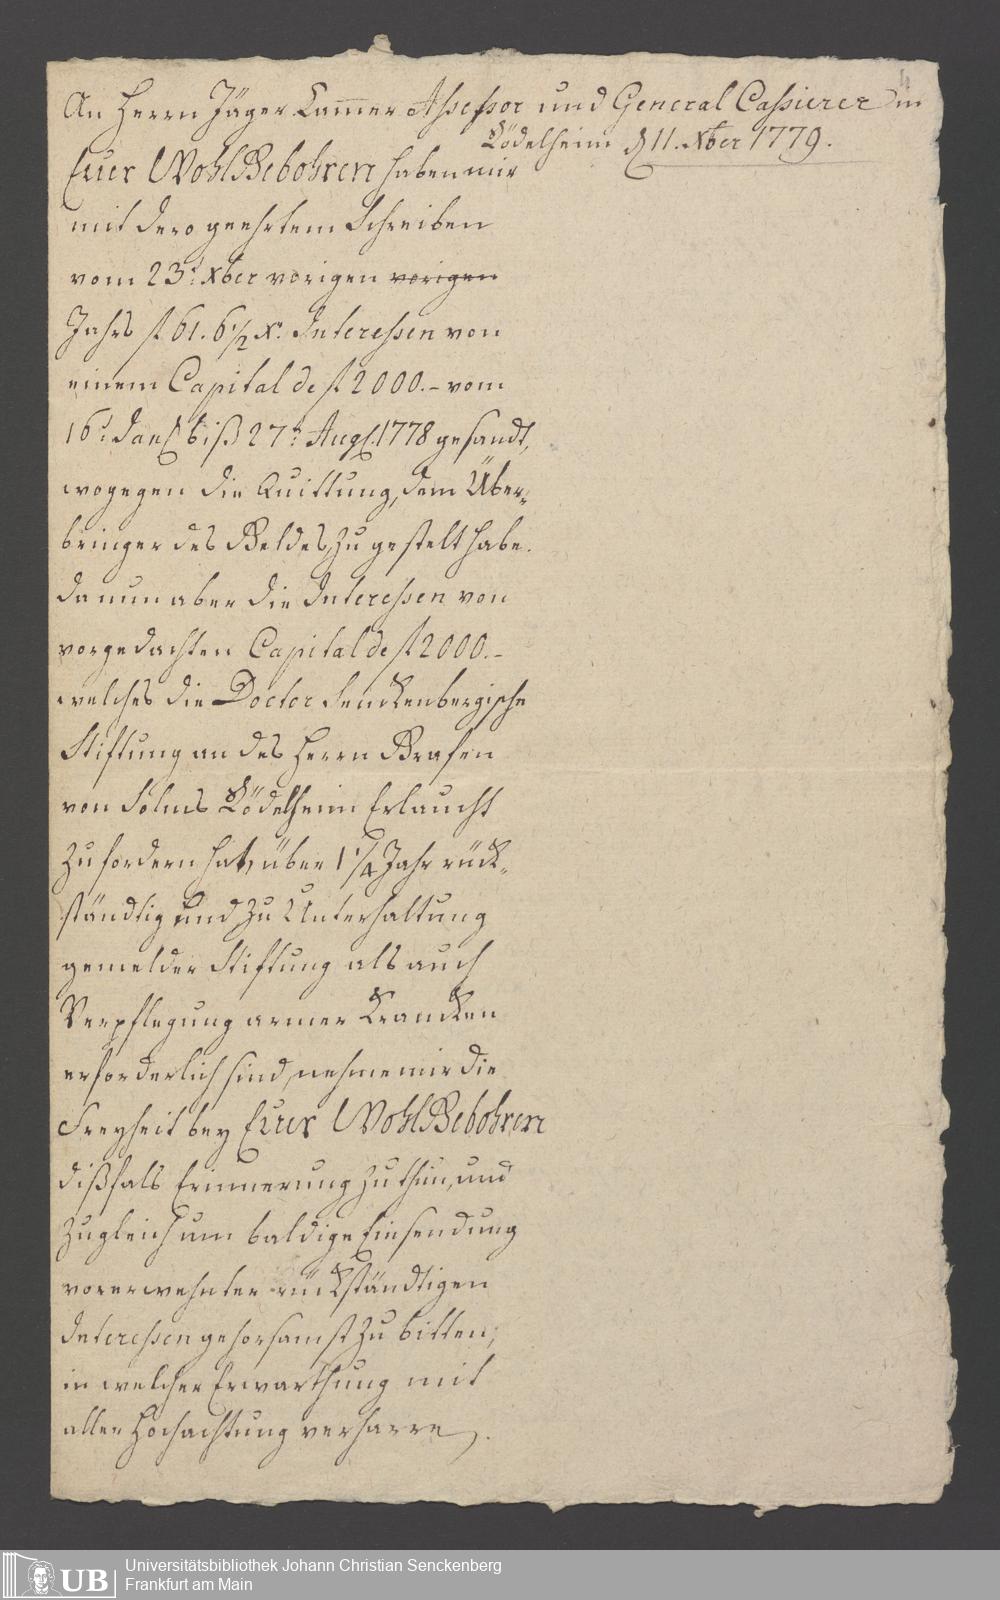 An Herrn Jäger Cammer Assessor und General Cassierer in
Rödelheim d 11. Xber 1779.
Euer WohlGebohren haben mir
mit dero geehrtem Schreiben
vom 23t Xber vorigen vorigen
Jahrs f 61. 6 1/2 Xr. Interessen von
einem Capital de f 2000.- vom
16t biß 27t Aug. 1778 gesandt,
wogegen die Quittung, dem Über-
bringer des Geldes, zu gestelt habe.
Da nun aber die Interessen von
vorgedachten Capital de f 2000.-
welches die Doctor Senckenbergische
Stiftung an des Herrn Grafen
von Solms Rödelheim Erlaucht
zu fordern hat, über 1 1/4 Jahr rück-
ständtig und zu Unterhaltung
gemelder Stiftung als auch
Verpflegung armer Krancken
erforderlich sind, nehme mir die
Freyheit bey Euer WohlGebohren
dißfals Erinnerung zu thun, und
zugleich um baldige Einsendung
vorerwehnter rückständtigen
Interessen gehorsamst zu bitten;
in welcher Erwarthung mit
aller Hochachtung verharre.
UB
Universitätsbibliothek Johann Christian Senckenberg
Frankfurt am Main